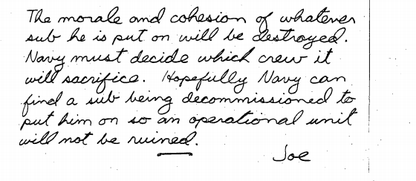 The morale and cohesion of whatever
sub he is put on will be destroyed.
Navy must decide which crew it
will sacrifice. Hopefully Navy can
find a sub being decommissioned to
put him on so an operational unit
will not be ruined.
Joe